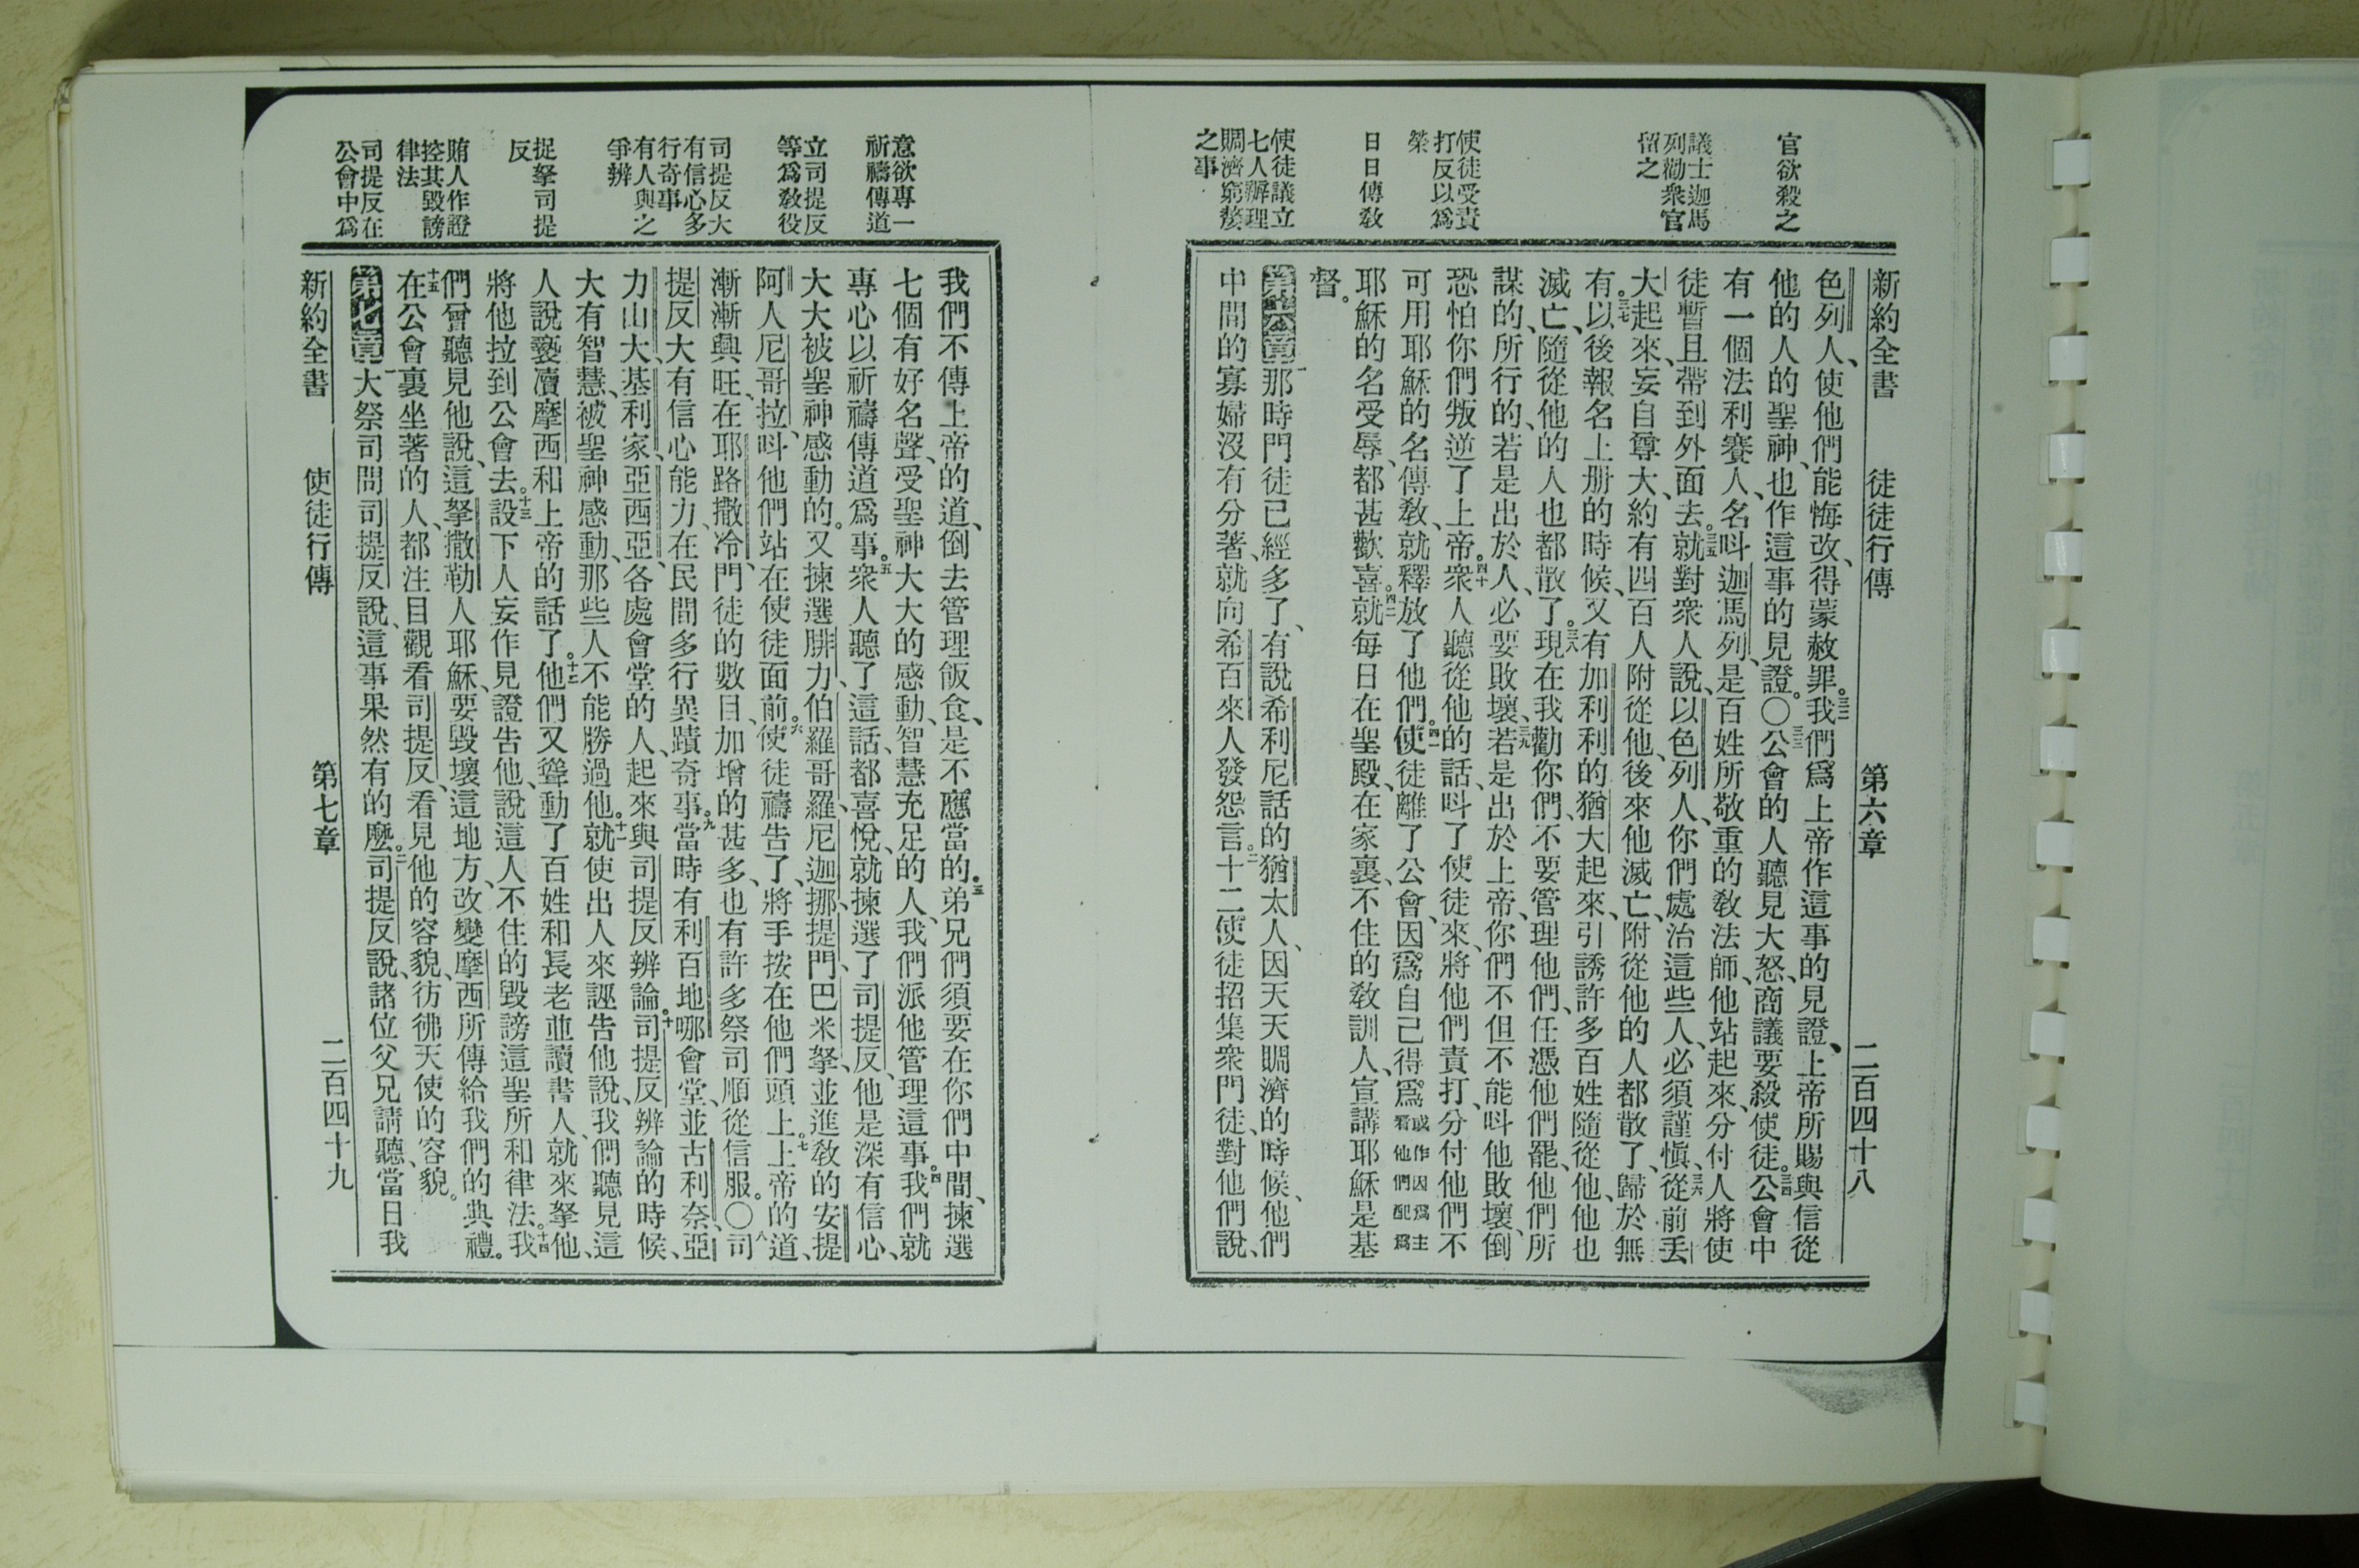 官欲殺之
議士迦馬
列勸衆官
留之
使徒受責
打反以爲
榮
日日傳敎
使徒議立
七人辦理
賙濟窮嫠
之事
新約全書　徒徒行傳　第六章　二百四十八
色列人、使他們能悔改、得蒙赦罪。三二我們爲上帝作這事的見證、上帝所賜與信從
他的人的聖神、也作這事的見證。〇三三公會的人聽見大怒、商議要殺使徒。三四公會中
有一個法利賽人、名呌迦馬列、是百姓所敬重的敎法師、他站起來、分付人將使
徒暫且帶到外面去。三五就對衆人說、以色列人、你們處治這些人、必須謹愼、三六從前丢
大起來、妄自尊大、約有四百人附從他、後來他滅亡、附從他的人都散了、歸於無
有。三七以後報名上册的時候、又有加利利的猶大起來、引誘許多百姓隨從他、他也
滅亡、隨從他的人也都散了。三八現在我勸你們、不要管理他們、任憑他們罷、他們所
謀的、所行的、若是出於人、必要敗壞、三九若是出於上帝、你們不但不能呌他敗壞、倒
恐怕你們叛逆了上帝。四十衆人聽從他的話、呌了使徒來、將他們責打、分付他們不
可用耶穌的名傳敎、就釋放了他們。四一使徒離了公會、因爲自己得爲或作因爲主看他們配爲
耶穌的名受辱、都甚歡喜。四二就每日在聖殿、在家裏、不住的敎訓人、宣講耶穌是基
督。
第六章一那時門徒已經多了、有說希利尼話的猶太人、因天天賙濟的時候、他們
中間的寡婦沒有分著、就向希百來人發怨言。二十二使徒招集衆門徒、對他們說、
意欲專一
祈禱傳道
立司提反
等爲敎役
司提反大
有信心多
行奇事
有人與之
爭辨
捉拏司提
反
賄人作證
控其毀謗
律法
司提反在
公會中爲
我們不傳上帝的道、倒去管理飯食、是不應當的。三弟兄們須要在你們中間、揀選
七個有好名聲、受聖神大大的感動、智慧充足的人、我們派他管理這事。四我們就
專心以祈禱傳道爲事。五衆人聽了這話、都喜悅、就揀選了司提反、他是深有信心、
大大被聖神感動的。又揀選腓力、伯羅哥羅、尼迦挪、提門、巴米拏、並進敎的安提
阿人尼哥拉、呌他們站在使徒面前。六使徒禱告了、將手按在他們頭上。七上帝的道、
漸漸興旺、在耶路撒冷、門徒的數目、加增的甚多、也有許多祭司順從信服。〇八司
提反大有信心能力、在民間多行異蹟奇事。九當時有利百地哪會堂、並古利奈、亞
力山大、基利家、亞西亞、各處會堂的人、起來與司提反辨論。十司提反辨論的時候、
大有智慧、被聖神感動、那些人不能勝過他。十一就使出人來誣告他說、我們聽見這
人說褻瀆摩西和上帝的話了。十二他們又聳動了百姓和長老並讀書人、就來拏他、
將他拉到公會去。十三設下人妄作見證告他、說這人不住的毀謗這聖所和律法。十四我
們曾聽見他說、這拏撒勒人耶穌、要毀壞這地方、改變摩西所傳給我們的典禮。
十五在公會裏坐著的人、都注目觀看司提反、看見他的容貌、彷彿天使的容貌。
第七章一大祭司問司提反說、這事果然有的麼。二司提反說、諸位父兄請聽、當日我
新約全書　使徒行傳　第七章　二百四十九